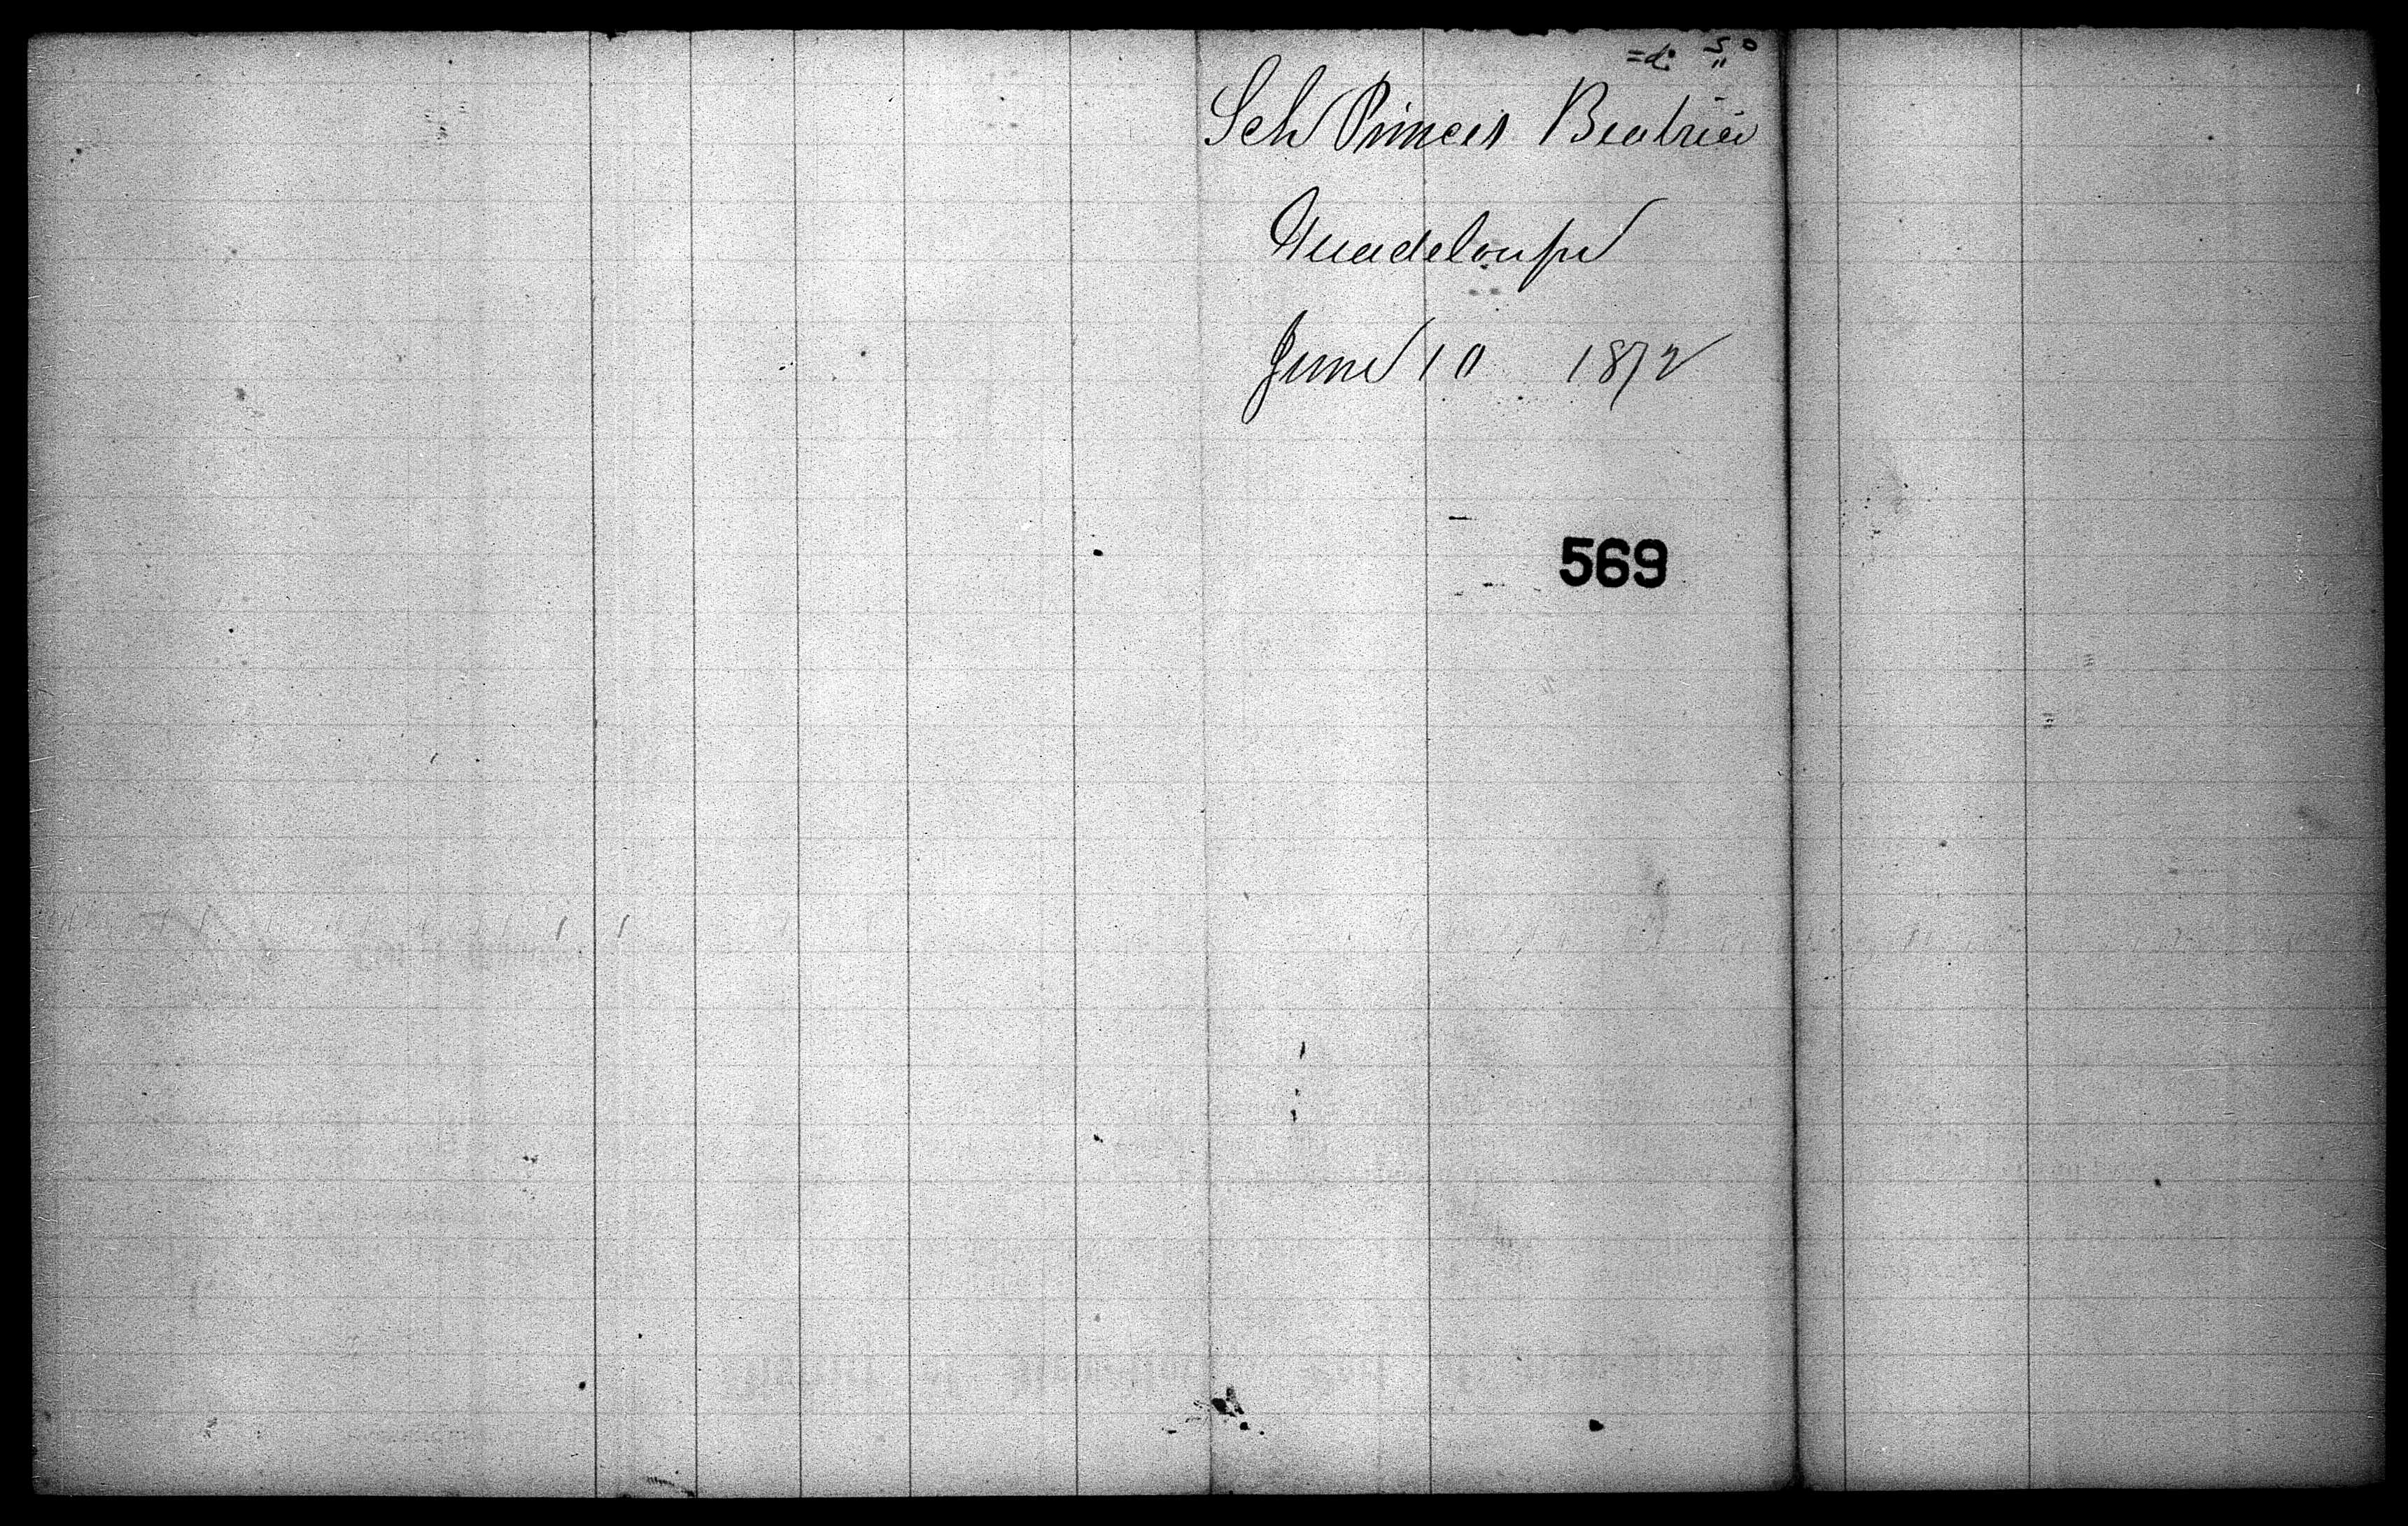 Sch Princess Beatrice
Guadeloupe
June 10 1872
569